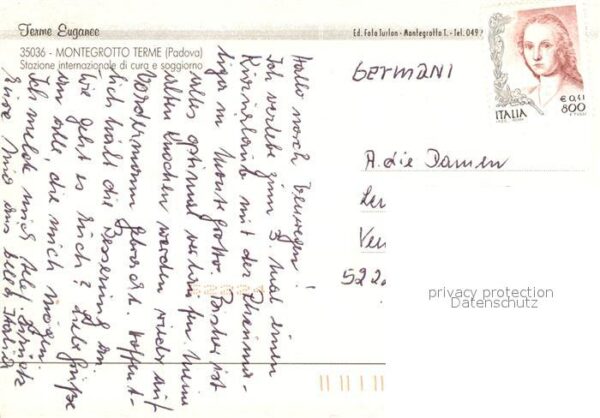 Terme Euganee
35036 - MONTEGROTTO TERME (Padova)
Stazione internazionale di cura e soggiorno
Ed. Foto Turlon - Montegrotto T. - Tel. 049
Hallo nach
Ich verlebe zum 3. Mal einen
Kururlaub mit der Rheuma-
liga in Montegrotto. Bisher ist
alles optimal verlaufen. Meine
alten Knochen werden wieder auf
Vordermann gebracht. Hoffent-
lich hält die Besserung an.
Wie geht es Euch? Liebe Grüße
an alle, die mich mögen
Ich melde mich telef. zurück
Eure aus bella Italia
GERMANI
A. die Damen
Ler
Ven
522
ITALIA
€ 0,41
800
privacy protection
Datenschutz